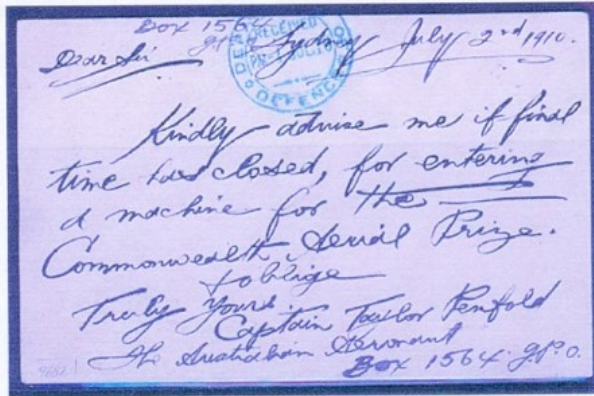 Box 1564
G.P.O. Sydney July 2nd 1910.
Dear Sir
RECEIVED
DEFENCE
Kindly advise me if final
time has closed, for entering
a machine for the
Commonwealth Aerial Prize.
& oblige
Truly Yours.
Captain Taylor Penfold
The Australian Aeronaut
Box 1564. G.P.O.